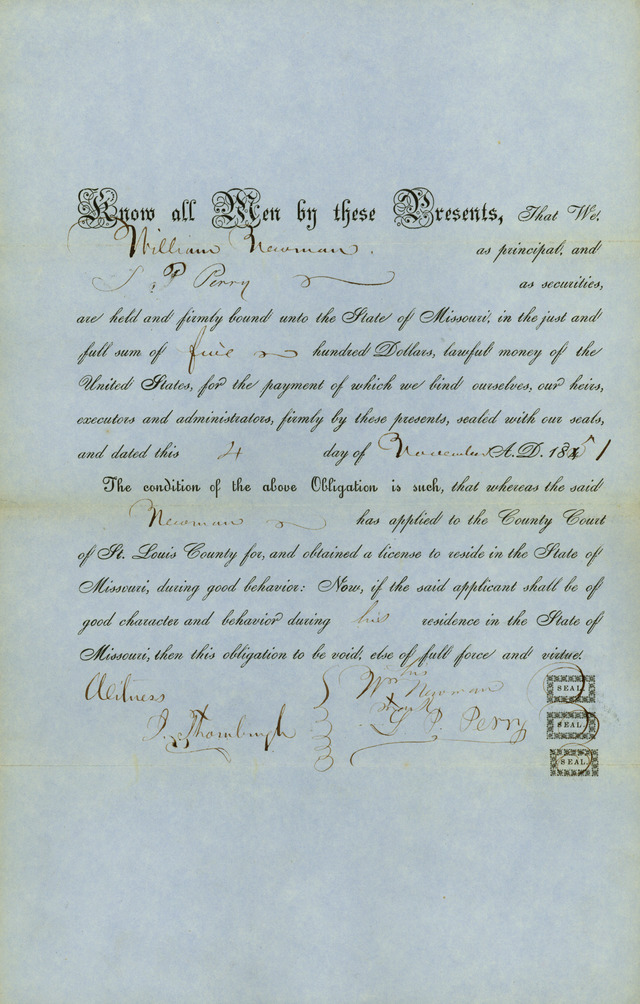 Know all Men by these Presents, That We,
William Newman. as principal, and
P Perry as securities,
are held and firmly bound unto the State of Missouri, in the just and
full sum of five hundred Dollars, lawful money of the
United States, for the payment of which we bind ourselves, our heirs,
executors and administrators, firmly by these presents, sealed with our seals,
and dated this 4 day of November A. D. 1851
The condition of the above Obligation is such, that whereas the said
Newman has applied to the County Court
of St. Louis County for, and obtained a license to reside in the State of
Missouri, during good behavior: Now, if the said applicant shall be of
good character and behavior during his residence in the State of
Missouri, then this obligation to be void, else of full force and virtue.
Witness Wm his Newman SEAL.
x mark
Thornburgh P. Perry SEAL.
SEAL.